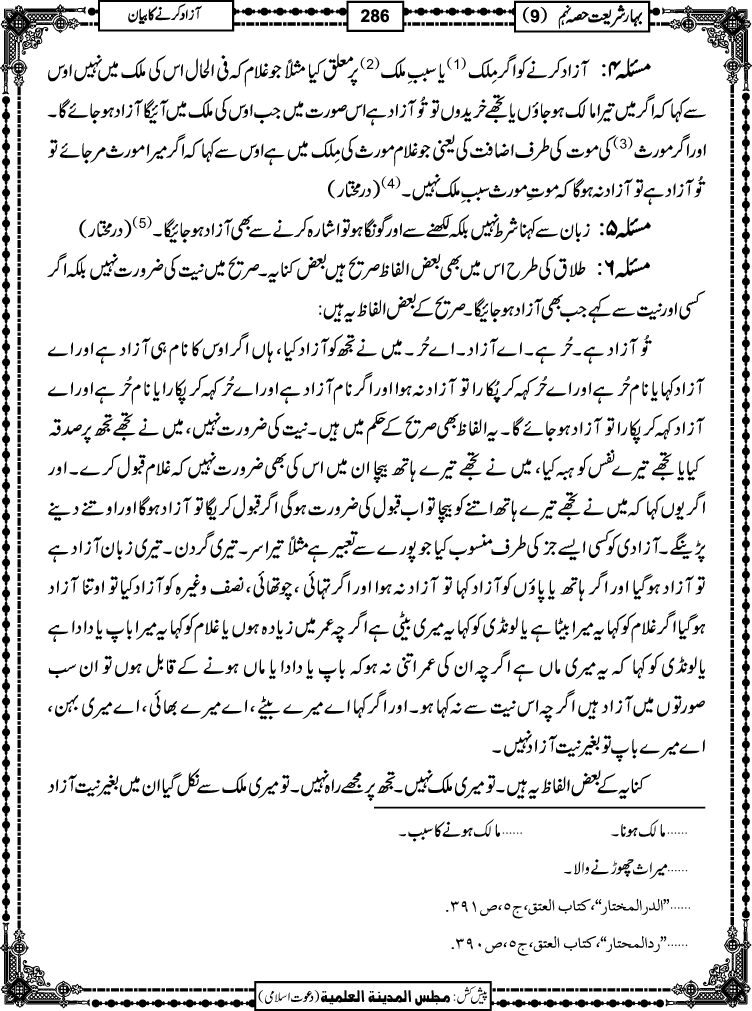 بہار شریعت حصہ نہم (9)
286
آزاد کرنے کا بیان
مسئلہ ۴: آزاد کرنے کو اگر مِلک (1) یا سببِ ملک (2) پر معلق کیا مثلاً جو غلام کہ فی الحال اس کی ملک میں نہیں اوس
سے کہا کہ اگر میں تیرا مالک ہو جاؤں یا تجھے خریدوں تو تُو آزاد ہے اس صورت میں جب اوس کی ملک میں آئیگا آزاد ہو جائے گا۔
اور اگر مورث (3) کی موت کی طرف اضافت کی یعنی جو غلام مورث کی مِلک میں ہے اوس سے کہا کہ اگر میرا مورث مر جائے تو
تُو آزاد ہے تو آزاد نہ ہوگا کہ موتِ مورث سببِ ملک نہیں۔ (4) (درمختار)
مسئلہ ۵: زبان سے کہنا شرط نہیں بلکہ لکھنے سے اور گونگا ہو تو اشارہ کرنے سے بھی آزاد ہو جائیگا۔ (5) (درمختار)
مسئلہ ۶: طلاق کی طرح اس میں بھی بعض الفاظ صریح ہیں بعض کنایہ۔ صریح میں نیت کی ضرورت نہیں بلکہ اگر
کسی اور نیت سے کہے جب بھی آزاد ہو جائیگا۔ صریح کے بعض الفاظ یہ ہیں:
تُو آزاد ہے۔ حُر ہے۔ اے آزاد۔ اے حُر۔ میں نے تجھ کو آزاد کیا، ہاں اگر اوس کا نام ہی آزاد ہے اور اے
آزاد کہا یا نام حُر ہے اور اے حُر کہہ کر پُکارا تو آزاد نہ ہوا اور اگر نام آزاد ہے اور اے حُر کہہ کر پکارا یا نام حُر ہے اور اے
آزاد کہہ کر پکارا تو آزاد ہو جائے گا۔ یہ الفاظ بھی صریح کے حکم میں ہیں۔ نیت کی ضرورت نہیں، میں نے تجھے تجھ پر صدقہ
کیا یا تجھے تیرے نفس کو ہبہ کیا، میں نے تجھے تیرے ہاتھ بیچا ان میں اس کی بھی ضرورت نہیں کہ غلام قبول کرے۔ اور
اگر یوں کہا کہ میں نے تجھے تیرے ہاتھ اتنے کو بیچا تو اب قبول کی ضرورت ہوگی اگر قبول کریگا تو آزاد ہوگا اور اوتنے دینے
پڑینگے۔ آزادی کو کسی ایسے جز کی طرف منسوب کیا جو پورے سے تعبیر ہے مثلاً تیرا سر۔ تیری گردن۔ تیری زبان آزاد ہے
تو آزاد ہوگیا اور اگر ہاتھ یا پاؤں کو آزاد کہا تو آزاد نہ ہوا اور اگر تہائی، چوتھائی، نصف وغیرہ کو آزاد کیا تو اوتنا آزاد
ہوگیا اگر غلام کو کہا یہ میرا بیٹا ہے یا لونڈی کو کہا یہ میری بیٹی ہے اگرچہ عمر میں زیادہ ہوں یا غلام کو کہا یہ میرا باپ یا دادا ہے
یا لونڈی کو کہا کہ یہ میری ماں ہے اگرچہ ان کی عمر اتنی نہ ہو کہ باپ یا دادا یا ماں ہونے کے قابل ہوں تو ان سب
صورتوں میں آزاد ہیں اگرچہ اس نیت سے نہ کہا ہو۔ اور اگر کہا اے میرے بیٹے، اے میرے بھائی، اے میری بہن،
اے میرے باپ تو بغیر نیت آزاد نہیں۔
کنایہ کے بعض الفاظ یہ ہیں۔ تو میری ملک نہیں۔ تجھ پر مجھے راہ نہیں۔ تو میری ملک سے نکل گیا ان میں بغیر نیت آزاد
......مالک ہونا۔ ......مالک ہونے کا سبب۔
......میراث چھوڑنے والا۔
......”الدرالمختار“، کتاب العتق، ج٥، ص٣٩١.
......”ردالمحتار“، کتاب العتق، ج٥، ص٣٩٠.
پیش کش: مجلس المدينة العلمية (دعوت اسلامی)